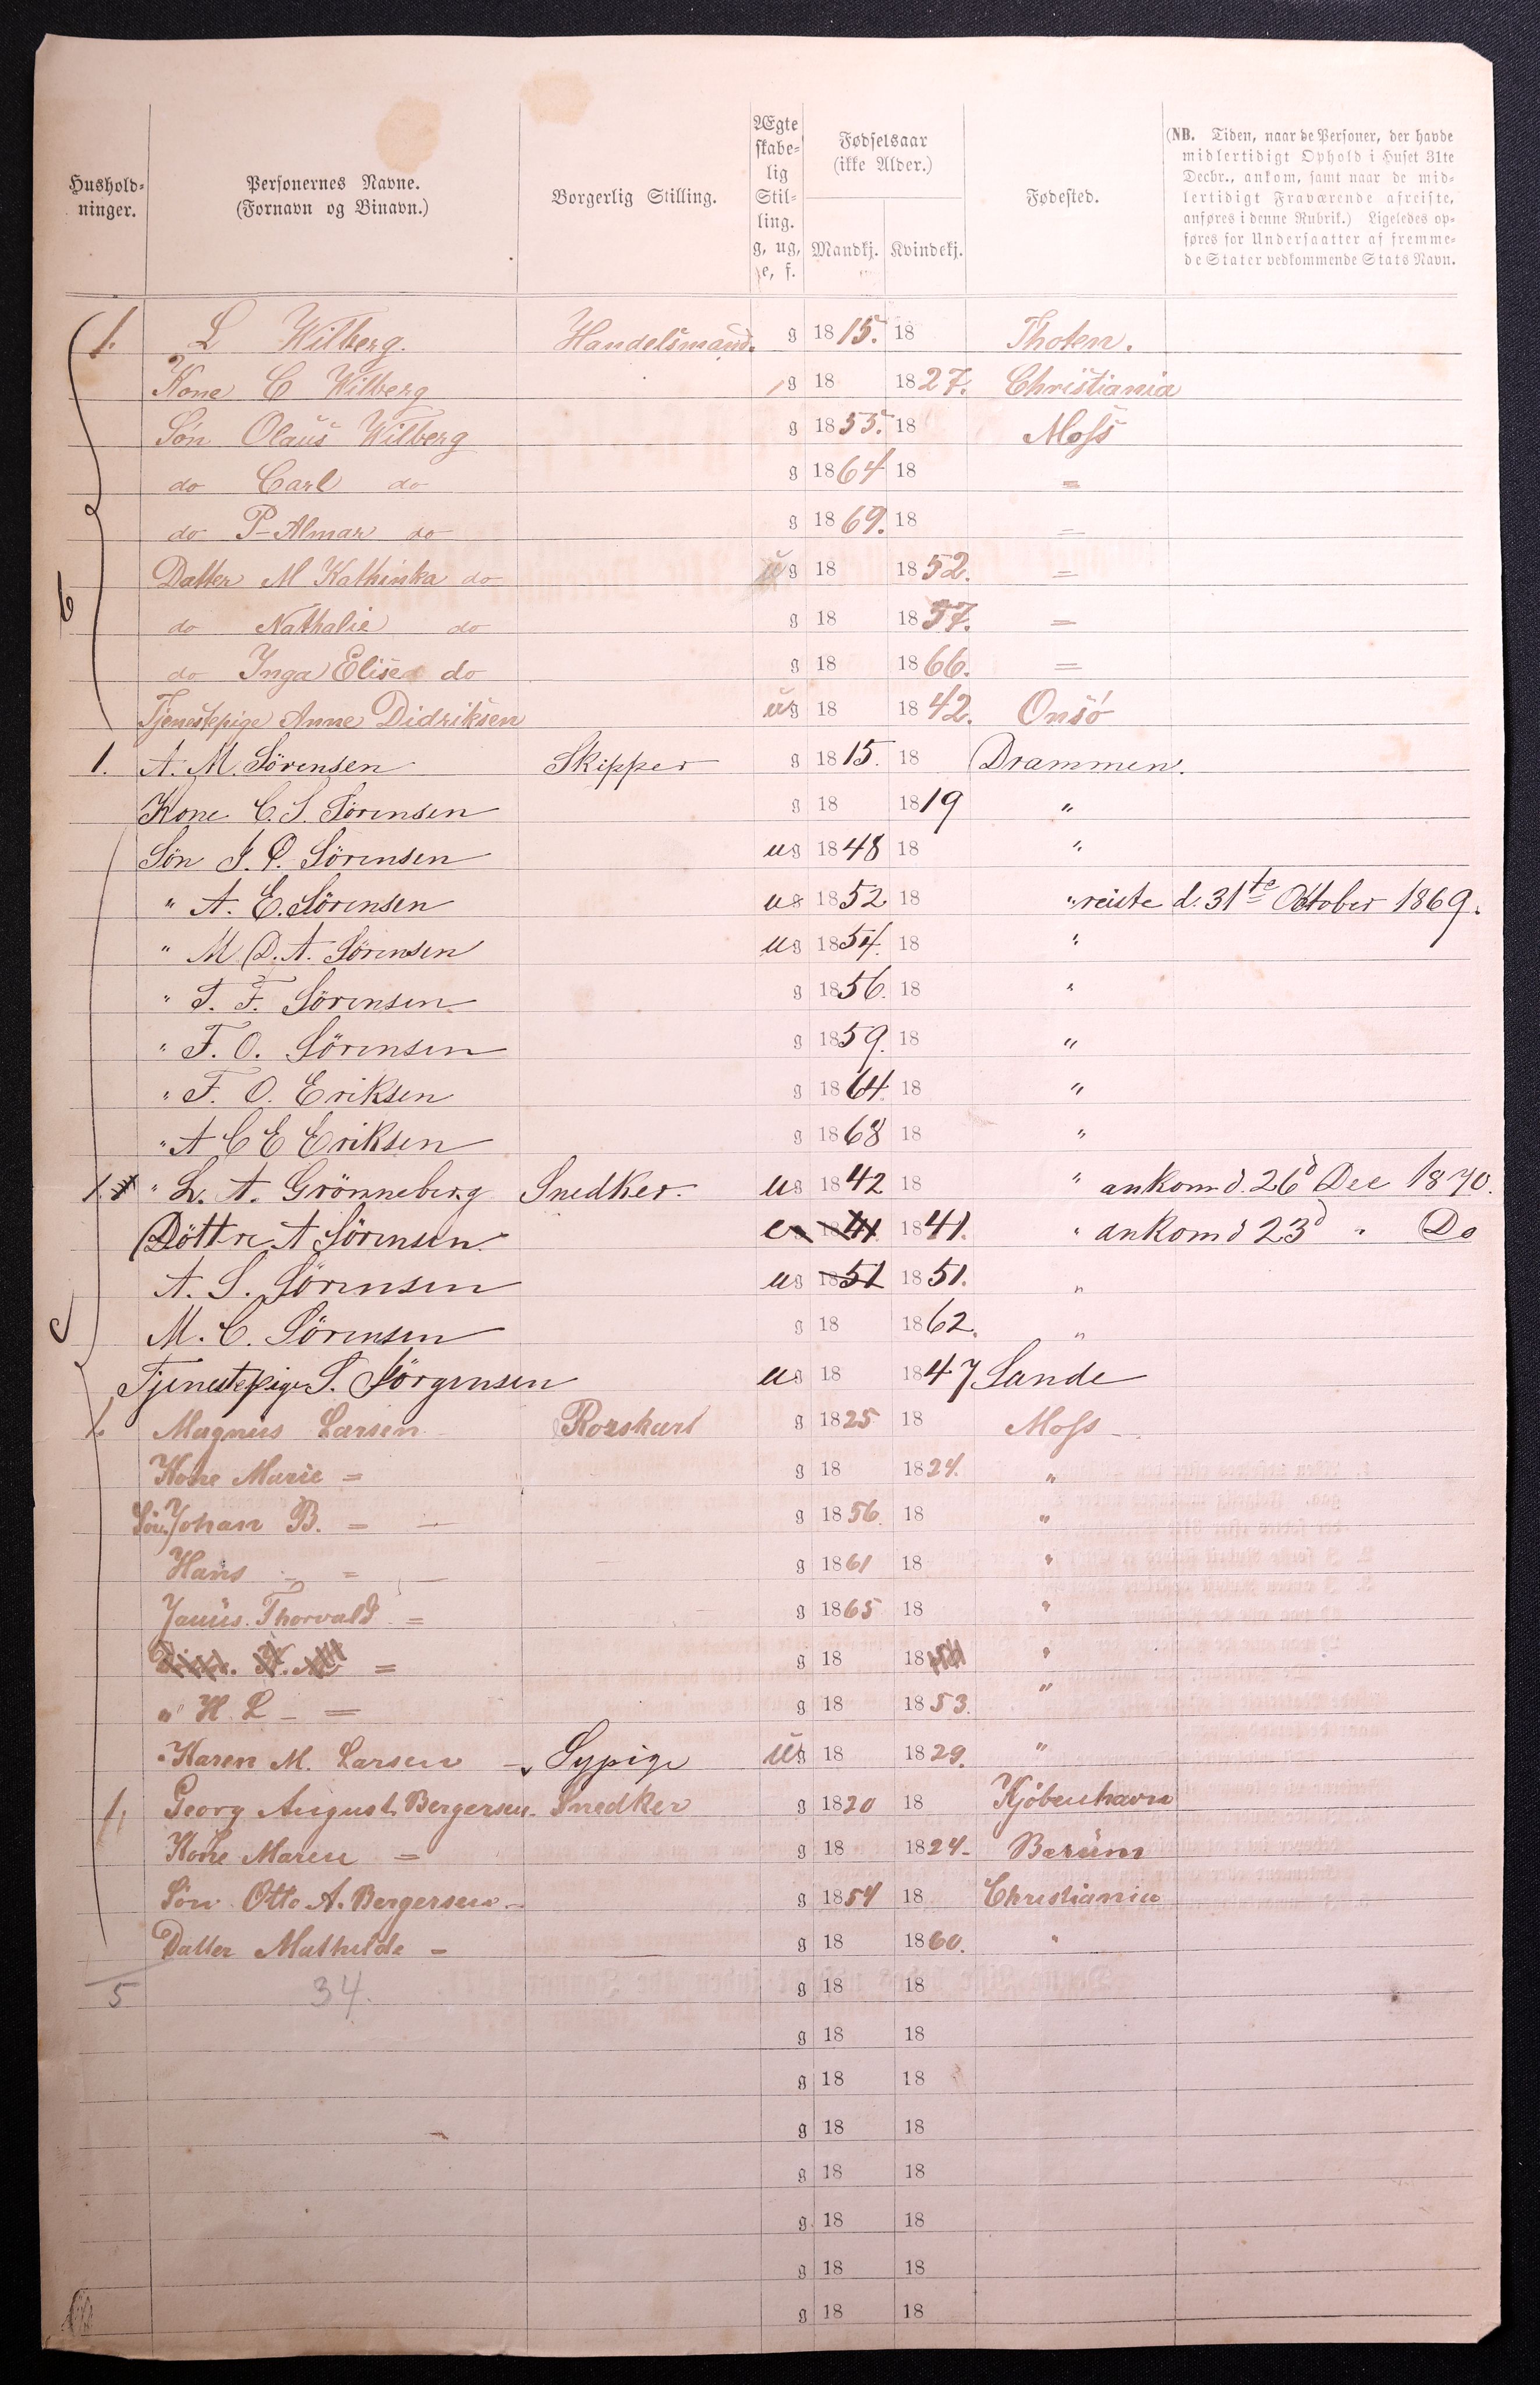 Hushold-
ninger.
Personernes Navne.
(Fornavn og Binavn.)
Borgerlig Stilling.
Ægte
skabe-
lig
Stil-
ling.
g, ug,
e, f.
Fødselsaar
(ikke Alder.)
Mandkj. Kvindekj.
Fødested.
(NB. Tiden, naar de Personer, der havde
midlertidigt Ophold i Huset 31te
Decbr., ankom, samt naar de mid-
lertidigt Fraværende afreiste,
anføres i denne Rubrik.) Ligeledes op-
føres for Undersaatter af fremme-
de Stater vedkommende Stats Navn.
1. L Wilberg. Handelsmand. g 1815. 18 Thoten.
Kone C Wilberg g 18 1827. Christiania
Søn Olaus Wilberg g 1855. 18 Moss
do Carl do g 1864 18 =
do P-Almar do g 1869. 18 =
Datter M Kathinka do ug 18 1852. =
do Nathalie do g 18 1857. =
do Inga Elise do g 18 1866. =
Tjenestepige Anne Didriksen ug 18 1842. Onsö
1. A. M. Sörensen Skipper g 1815. 18 Drammen.
Kone C. S. Sörensen g 18 1819 "
Sön J. P. Sörensen ug 1848 18 "
" A. E. Sörensen ug 1852 18 " reiste d. 31te Oktober 1869.
" M D. A. Sörensen ug 1854. 18 "
" T. F. Sörensen g 1856. 18 "
" F. O. Sörensen g 1859. 18 "
" F. O. Eriksen g 1864. 18 "
" A C E Eriksen g 1868 18 "
1. " L. A. Grönneberg Snedker. ug 1842 18 " ankom d. 26d Dec 1870.
Döttre A Sörensen e 1841 1841. " ankom d 23d " Do
A. S. Sörensen ug 1851 1851. "
M. C. Sörensen g 18 1862. "
Tjenestepige S. Jörgensen ug 18 1847 Sande
1. Magnus Larsen Rorskarl g 1825 18 Moss
Kone Marie = g 18 1824. "
Søn Johan B. = g 1856. 18 "
Hans = g 1861 18 "
Janus. Thorvald = g 1865 18 "
= g 18 18 "
" H. L = g 18 1853. "
" Karen M. Larsen Sypige ug 18 1829. "
1, Georg August Bergersen Snedker g 1820 18 Kjöbenhavn
Kone Maren = g 18 1824 Bærum
Søn Otto A. Bergersen g 1854 18 Christiania
Datter Mathilde g 18 1860. "
5 34. g 18 18
g 18 18
g 18 18
g 18 18
g 18 18
g 18 18
g 18 18
g 18 18
6